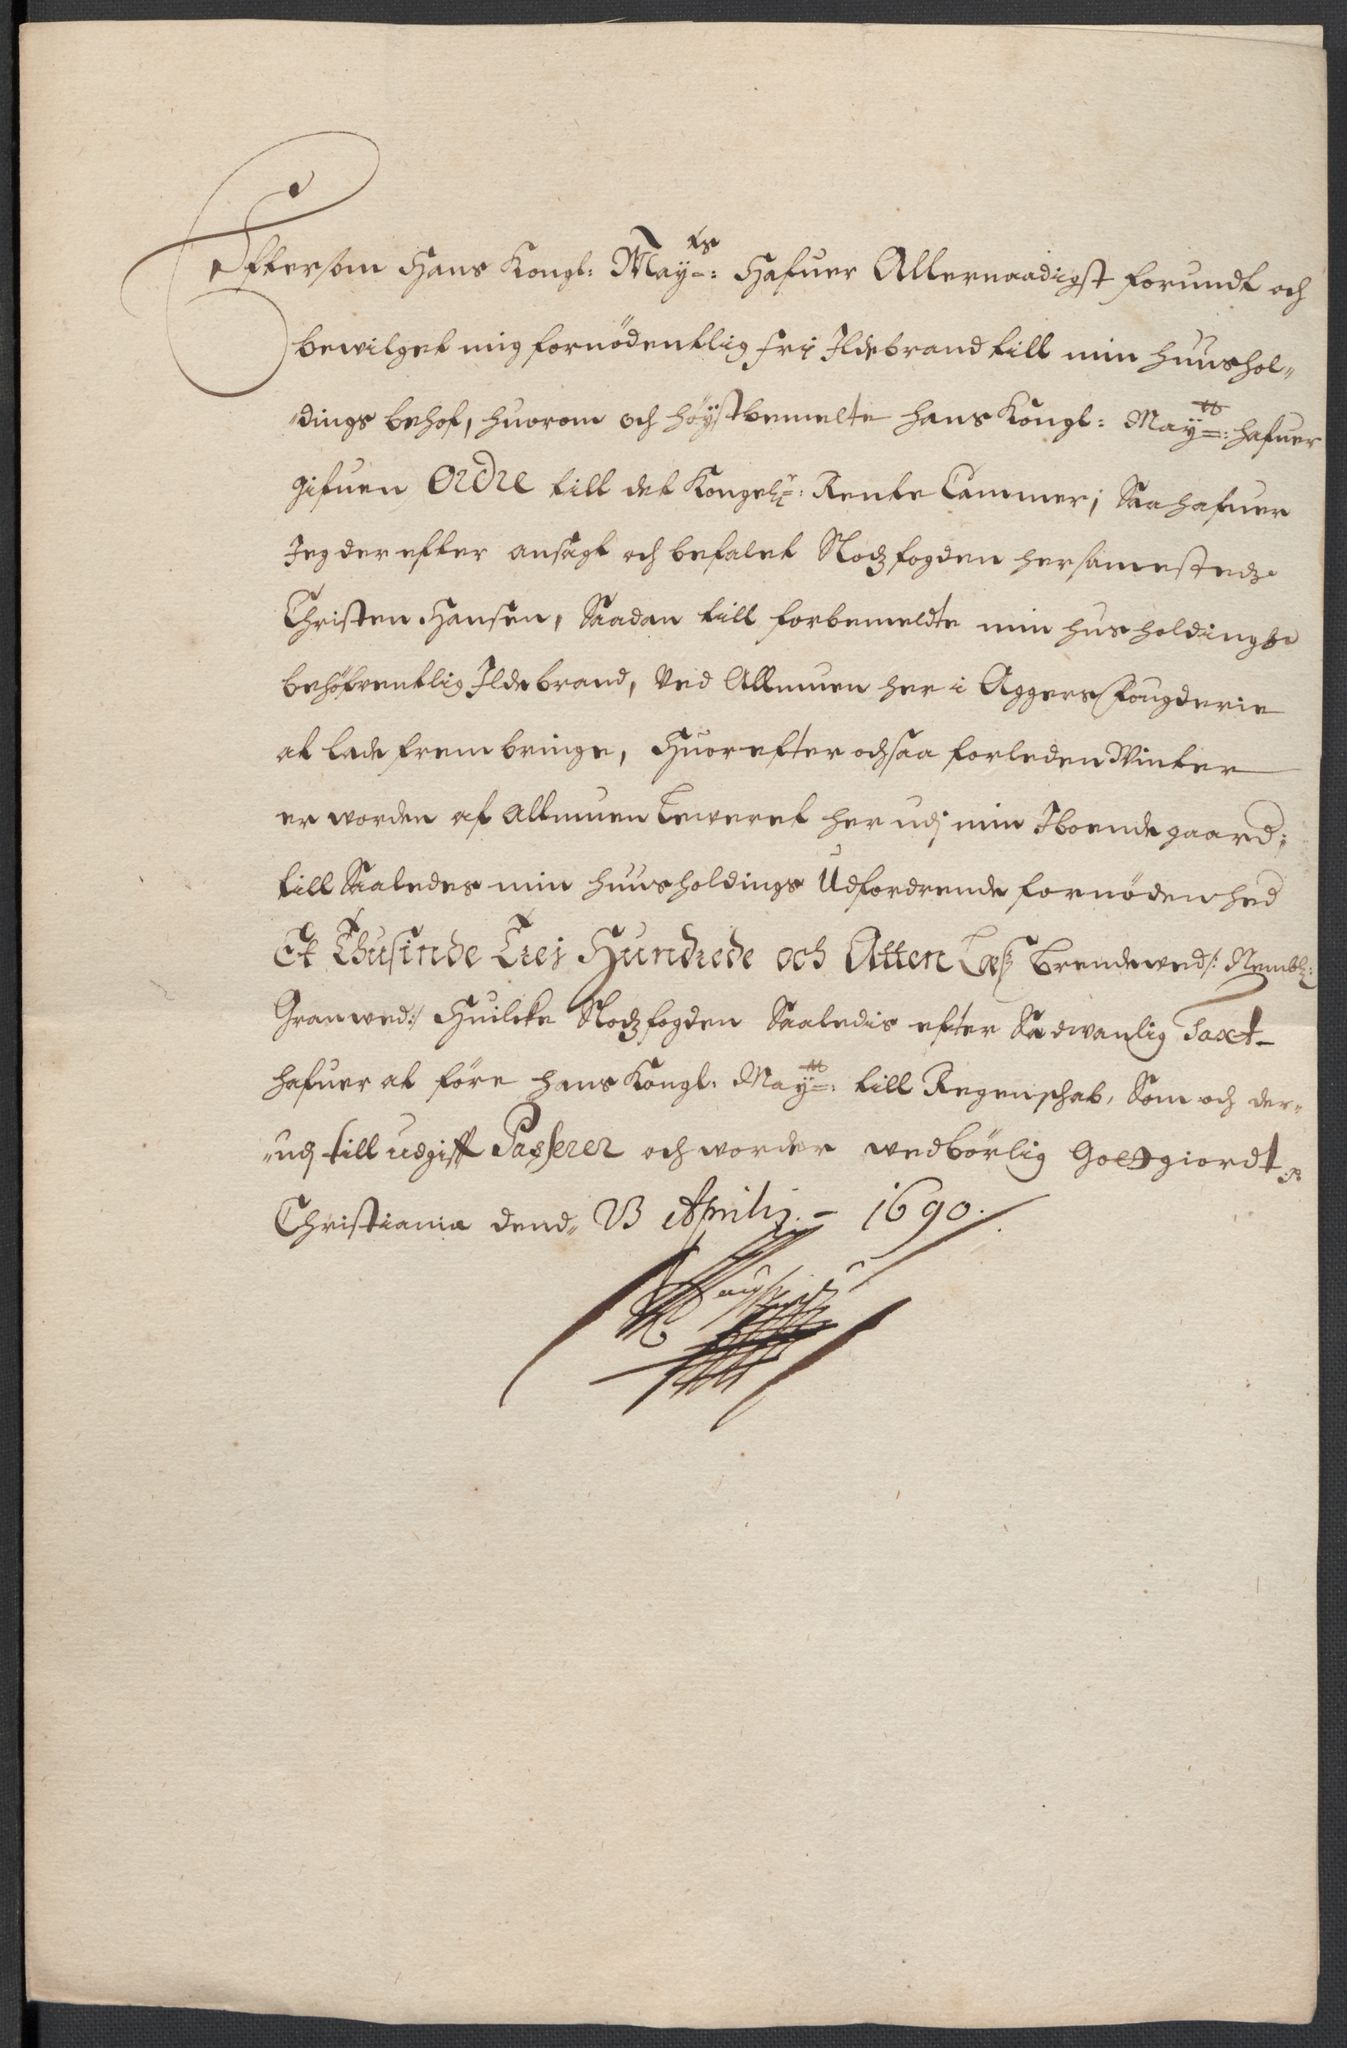 Eftersom Hans Kongl: May:ts Hafuer Allernaadigst forundt och
bewilget mig fornödentlig frij Jldebrand till min huushol-
dings behof, huorom och höystbemelte hans Kongl: May:tt hafuer
gifuen Ordre till det Kongel: Rente Cammer; Saa hafuer
Jeg der efter ansagt och befalet Slodzfogden hersamestedz
Christen Hansen, Saadan till forbemeldte min husholdings
behöfventlig Jldebrand, Ved Allmuen her i Aggers Fougderie
at lade frembringe, Huorefter ochsaa forleden Winter
er worden af Allmuen Leweret her udj min Jboende gaard;
till Saaledes min huusholdings Udfordrende fornödenhed
Et Thusinde Trej Hundrede och Atten Læs Brendewed /: Nembl:
Granwed :/ Huilcke Slodzfogden Saaledis efter Sædwanlig Taxt
hafuer at före hans Kongl: May:tt till Regenschab, Som och der-
udj till udgifft Passerer och worder wedbörlig Goedtgiordt
Christiania dend 23 Aprilij - 1690.